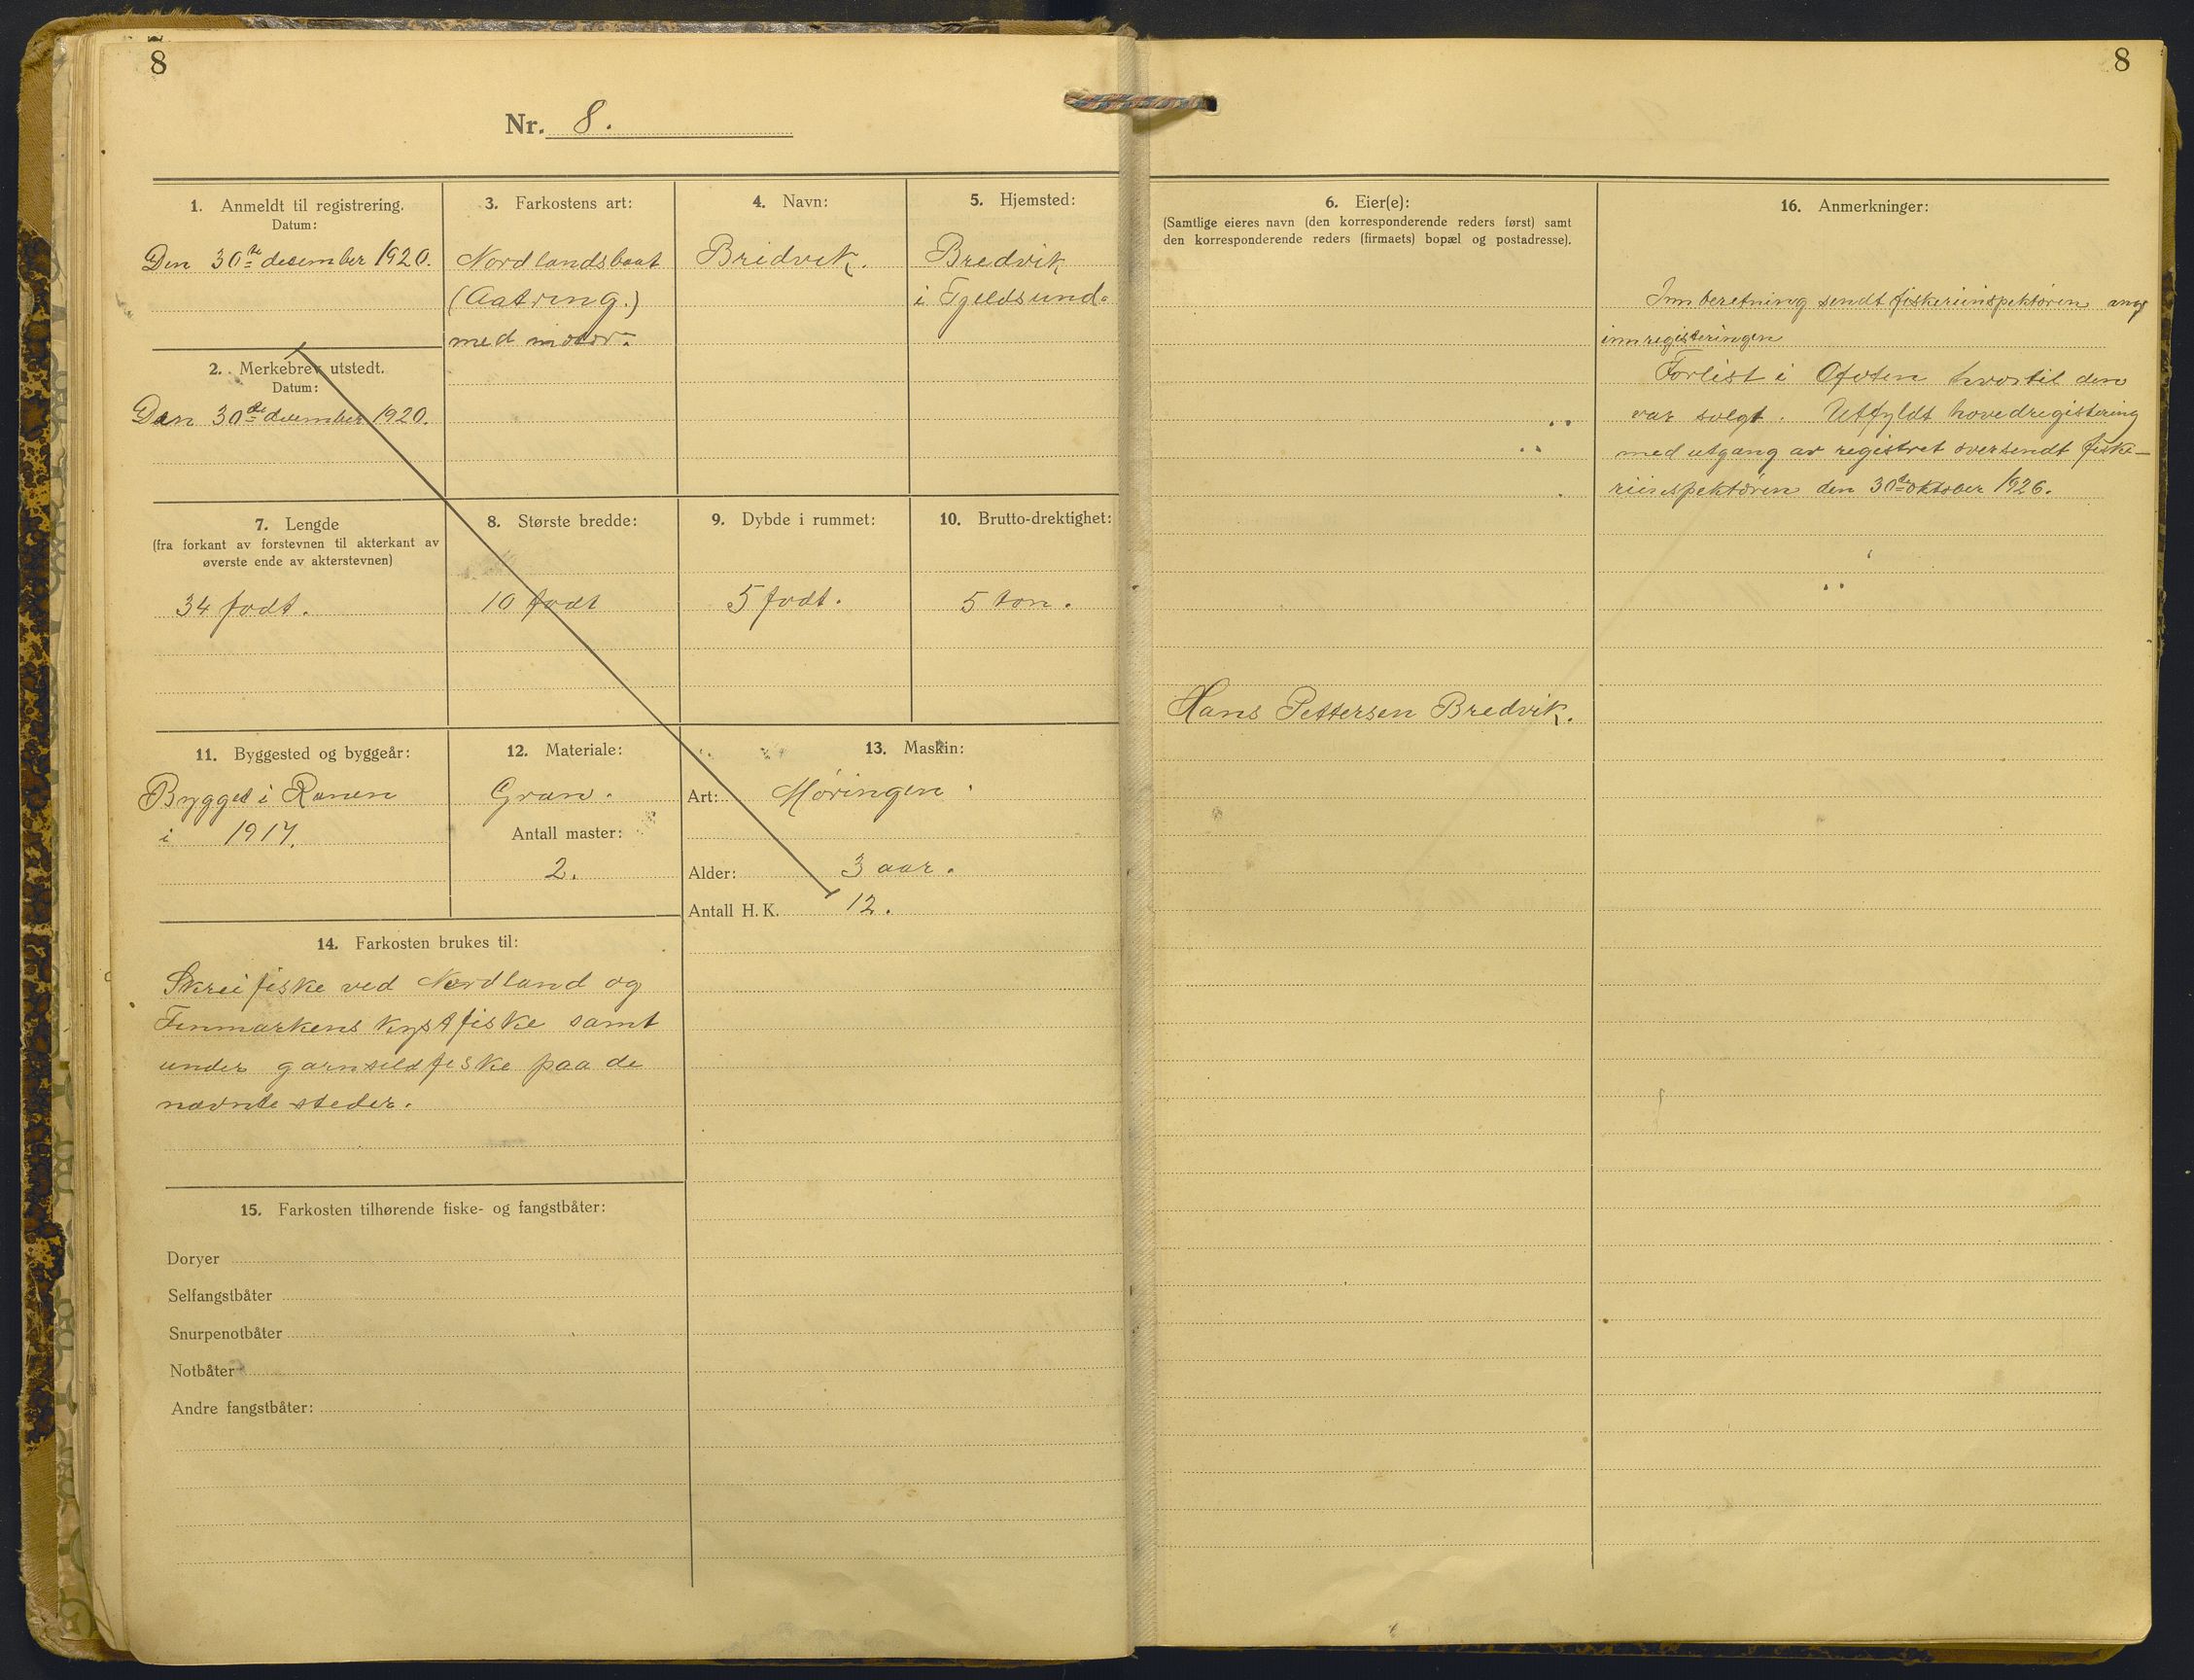 8
8
Nr. 8.
1. Anmeldt til registrering.
Datum:
Den 30te december 1920.
2. Merkebrev utstedt.
Datum:
Den 30te december 1920.
3. Farkostens art:
Nordlandsbaat
(Aatring.)
med motor.
4. Navn:
Bredvik.
5. Hjemsted:
Bredvik
i Tjeldsund.
6. Eier(e):
(Samtlige eieres navn (den korresponderende reders først) samt
den korresponderende reders (firmaets) bopæl og postadresse).
Hans Pettersen Bredvik.
7. Lengde
(fra forkant av forstevnen til akterkant av
øverste ende av akterstevnen)
34 fodt.
8. Største bredde:
10 fodt
9. Dybde i rummet:
5 fodt.
10. Brutto-drektighet:
5 ton.
11. Byggested og byggeår:
Bygget i Ranen
i 1917.
12. Materiale:
Gran.
Antall master:
2.
13. Maskin:
Art: Møringen.
Alder: 3 aar.
Antall H. K. 12.
14. Farkosten brukes til:
Skreifiske ved Nordland og
Finmarkens kystfiske samt
under garnsildfiske paa de
nævnte steder.
15. Farkosten tilhørende fiske- og fangstbåter:
Doryer
Selfangstbåter
Snurpenotbåter
Notbåter
Andre fangstbåter:
16. Anmerkninger:
Innberetning sendt fiskeriinspektøren ang
innregisteringen
Forlist i Ofoten hvortil den
var solgt. Utfyldt hovedregistering
med utgang av registret oversendt fiske-
riinspektøren den 30te oktober 1926.